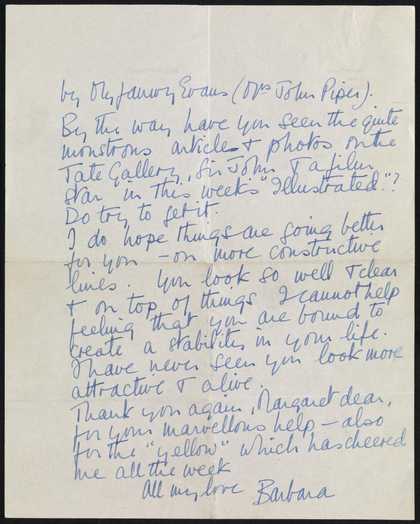 by Myfanwy Evans (Mrs John Piper).
By the way have you seen the quite
monstrous articles & photos on the
Tate Gallery, Sir John & a film
star in this week's "Illustrated"?
Do try to get it.
I do hope things are going better
for you – on more constructive
lines. You look so well & clear
& on top of things I cannot help
feeling that you are bound to
create a stability in your life.
I have never seen you look more
attractive & alive.
Thank you again, Margaret dear,
for your marvellous help – also
for the "yellow" which has cheered
me all the week
All my love Barbara